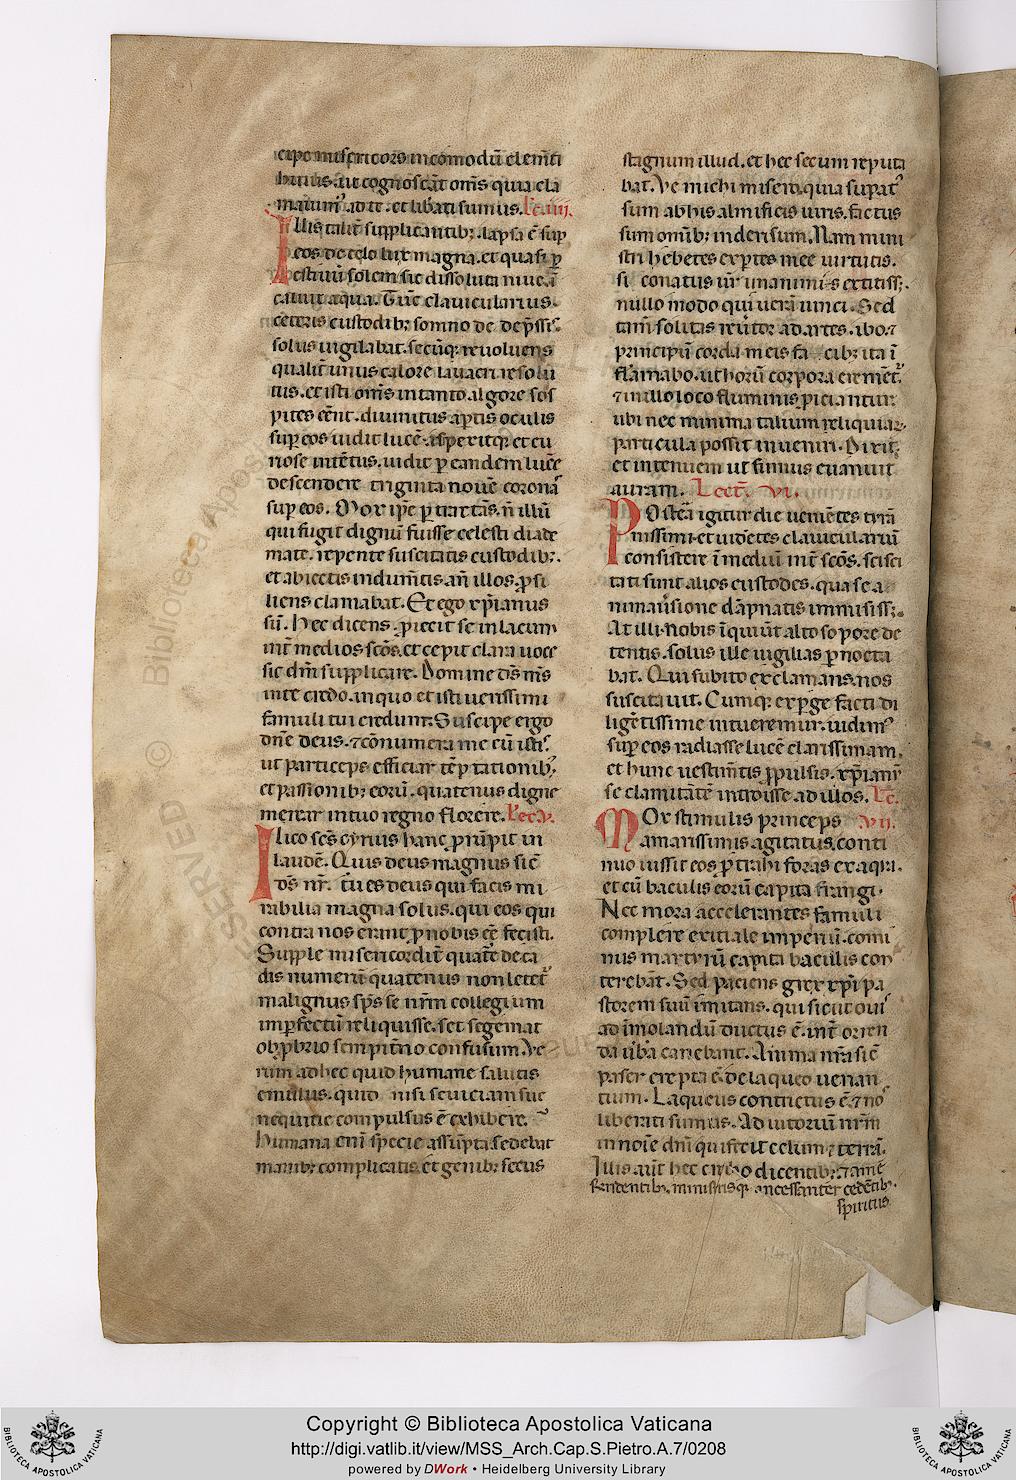 cipe misericors incomodū clemēti
bitius. ut cognoscāt om̄s quia cla
mauim᷒ ad te. et libati sumus. Lc̄. iiij.
Illis talit̄ supplicantibꝫ. lapsa ē suꝑ
eos de celo lux magna. et quasi ꝑ
estiuū solem sic dissoluta niue. ī
caluit aqua. Tūc clauicularius.
ceteris custodibꝫ somno de dep̄ssis.
solus uigilabat. secūqꝫ reuoluens
qualit̄ unus calore lauacri resolu
tus. et isti om̄s in tanto algore sos
pites eēnt. diuinitus aꝑtis oculis
suꝑ eos uidit lucē. aspexitqꝫ et cu
riose intētus. uidit ꝑ eandem lucē
descendere triginta nouē coronas
suꝑ eos. Mox ip̄e ꝑtractās. n̄ illū
qui fugit dignū fuisse celesti diade
mate. repente suscitatis custodibꝫ.
et abiectis indum̄tis. an̄ illos. ꝓsi
liens clamabat. Et ego xp̄ianus
sū. Hec dicens. ꝓiecit se in lacum
int̄ medios scōs. et cepit clara uoce
sic dm̄ supplicare. Domine ds̄ m̄s
in te credo. in quo et isti uerissimi
famuli tui credunt. Suscipe ergo
dn̄e deus. ⁊ cōnumera me cū istis.
ut particeps efficiar tēptationibꝫ.
et passionibꝫ eorū. quatenus digne
merear in tuo regno florere. Lec. v.
Ilico scs̄ cyrius hanc prūpit in
laudē. Quis deus magnus sic
ds̄ nr̄. tu es deus qui facis mi
rabilia magna solus. qui eos qui
contra nos erant ꝓ nobis eē fecisti.
Supple misericordit̄ quat̄ de ca
dis numerū quatenus non letet᷒
malignus sp̄s se nr̄m collegium
imꝑfectū reliquisse. set segemat
obꝓbrio sempit̄no confusum. Ve
rum adhec quid humane salutis
emulus. quid nisi seuiciam sue
nequitie compulsus ē exhibere.
humana eni specie assūpta sedebat
manibꝫ complicatis et genibꝫ secus
stagnum illud. et hec secum reputa
bat. Ve michi misero. quia suꝑat᷒
sum ab his almificis uiris. factus
sum omībꝫ in derisum. Nam mini
stri hebetes exꝑtes mee uirtutis.
si conatus iūr̄ unanimis extitissꝫ.
nullo modo quiuerā uinci. Sed
tam̄ solitas reūtor ad artes. ibo. ⁊
principū corda meis fa cibꝫ ita ī
flāmabo. ut horū corpora cremēt᷒.
⁊ in illo loco fluminis ꝓiciantur
ubi nec minima talium reliquiaꝝ
particula possit inueniri. Dixit.
et in tenuem ut fumus euanuit
auram. Lect̄. vi.
Posteā igitur die ueniētes tirā
nissimi. et uidētes clauiculariū
consistere ī mediū int̄ scōs. scisci
tati sunt alios custodes. qua se a
nimauisione dāpnatis immisissꝫ.
At illi. Nobis īquiūt alto sopore de
tentis. solus ille uigilias ꝑnocta
bat. Qui subito exclamans. nos
suscitauit. Cumqꝫ exꝑgefacti di
ligētissime intueremur. uidim᷒
suꝑ eos radiasse lucē clarissimam.
et hunc uestim̄tis ꝓpulsis. xp̄ianū
se clamitātē introisse ad illos. Lc̄.
Mox stimulis princeps vij.
amarissimis agitatus. conti
nuo iussit eos ꝑtrahi foras ex aqua.
et cū baculis eorū capita frangi.
Nec mora accelerantes famuli
complere exitiale imperiū. comi
nus martyrū capita baculis con
terebāt. Sed paciens grex xp̄i pa
storem suū imitans. qui sicut ouis
ad īmolandū ductus ē. int̄ orren
da ūba canebant. Anima nr̄a sic̄
passer erepta ē de laqueo uenan
tium. Laqueus contritus ē. ⁊ nos
liberati sumus. Adiutorium nr̄m
in noīe dn̄i qui fecit celum ⁊ terrā.
Illis aūt hec cirilo dicentibꝫ. ⁊ amē
respondentibꝫ. ministrisqꝫ incessanter cedētibꝫ.
spiritus
Copyright © Biblioteca Apostolica Vaticana
http://digi.vatlib.it/view/MSS_Arch.Cap.S.Pietro.A.7/0208
powered by DWork • Heidelberg University Library